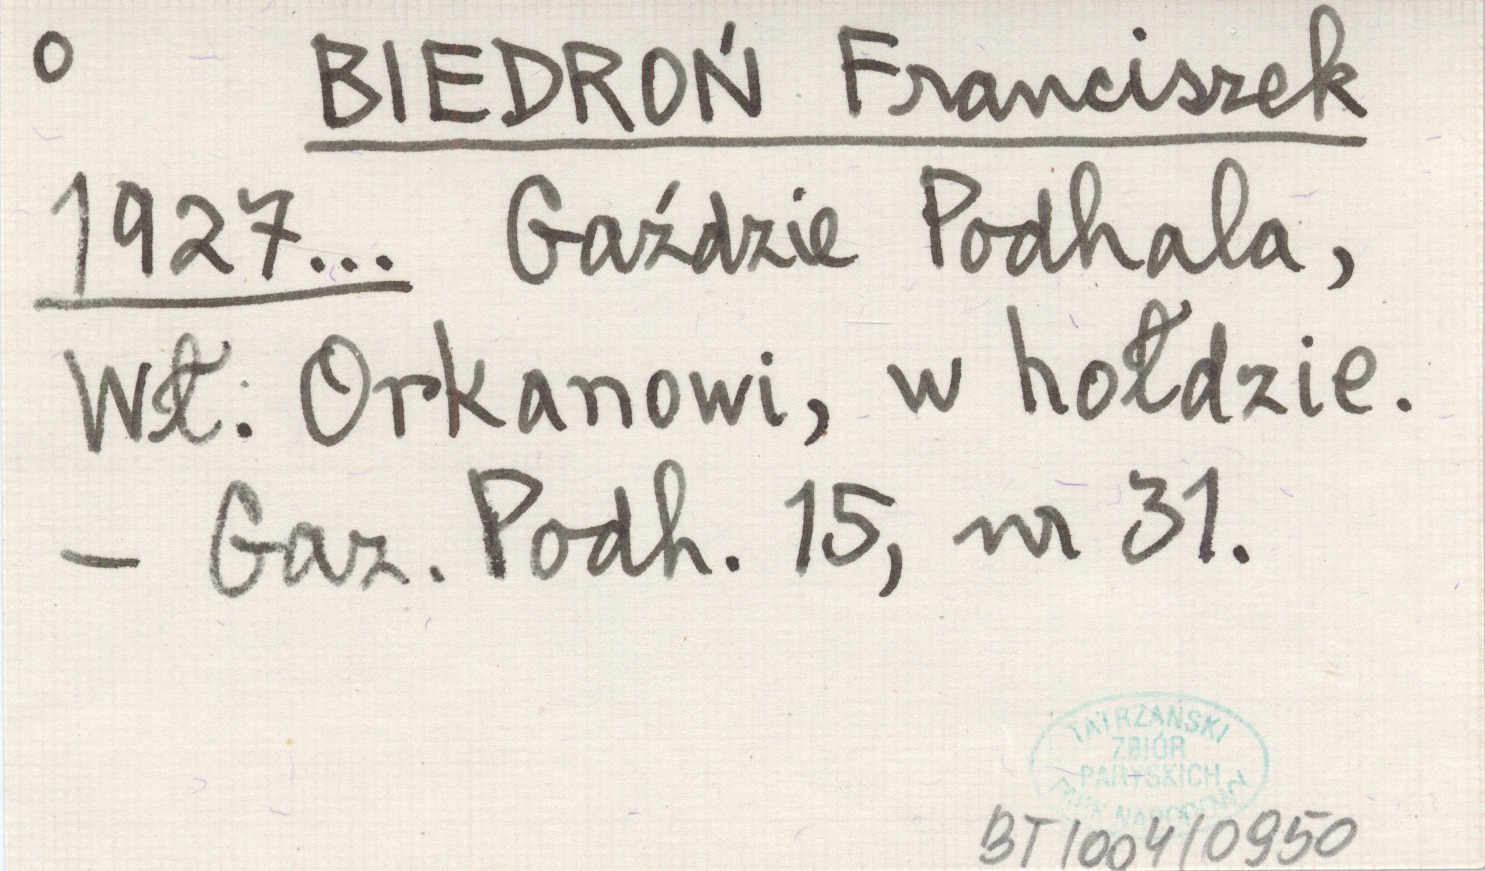 o BIEDROŃ Franciszek
1927... Gaździe Podhala,
Wł. Orkanowi, w hołdzie.
– Gaz. Podh. 15, nr 31.
TATRZAŃSKI
ZBIÓR
PARYSKICH
PARK NARODOWY
BT/004/0950